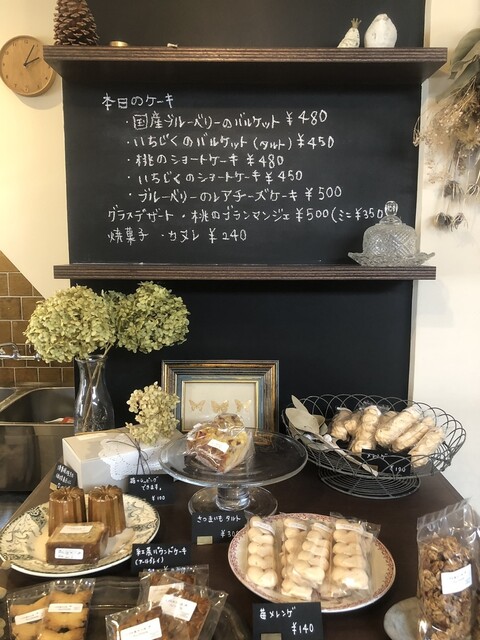 本日のケーキ
・国産ブルーベリーのバルケット ¥480
・いちじくのバルケット(タルト) ¥450
・桃のショートケーキ ¥480
・いちじくのショートケーキ ¥450
・ブルーベリーのレアチーズケーキ ¥500
グラスデザート ・桃のブランマンジェ ¥500(ミニ ¥350
焼菓子 ・カヌレ ¥240
¥190
できます。
¥100
さつまいもタルト
紅茶パウンドケーキ
(アールグレイ)
苺メレンゲ
¥140